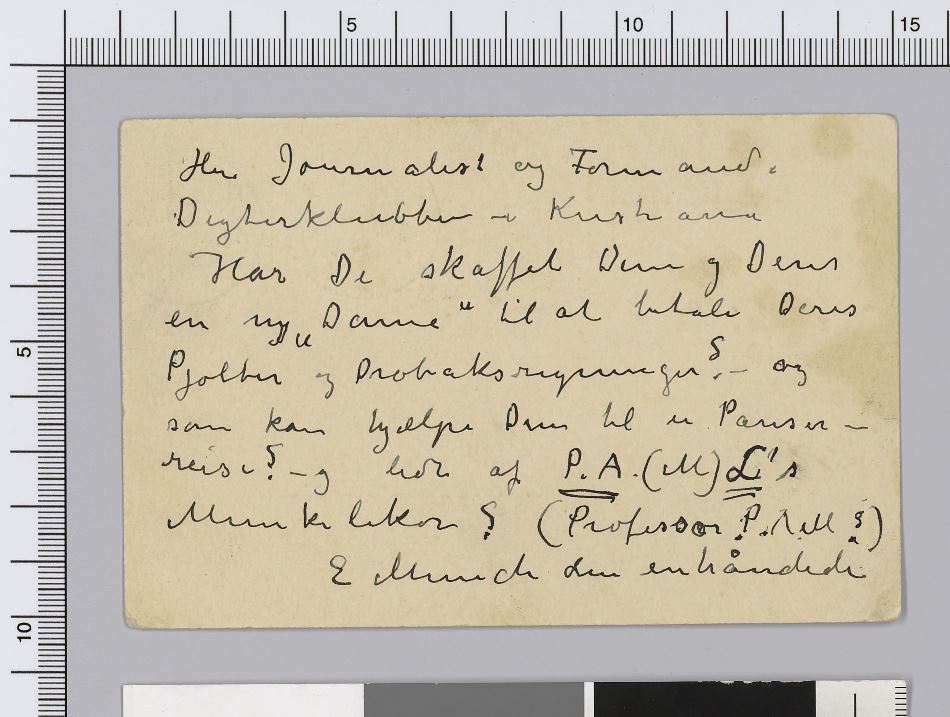 5 10 15
Herr Journalist og Formand i
Digterklubben i Kristiania
Har De skaffet Dem og Deres
en ny „Dame" til at betale Deres
Pjolter og Drobaksregninger? – og
som kan hjælpe Dem til en Pariser–
reise? – og lidt af P. A. (M) L's
Munkelikør ? (Professor P. A. M ?)
E Munch den enhåndede
5
10